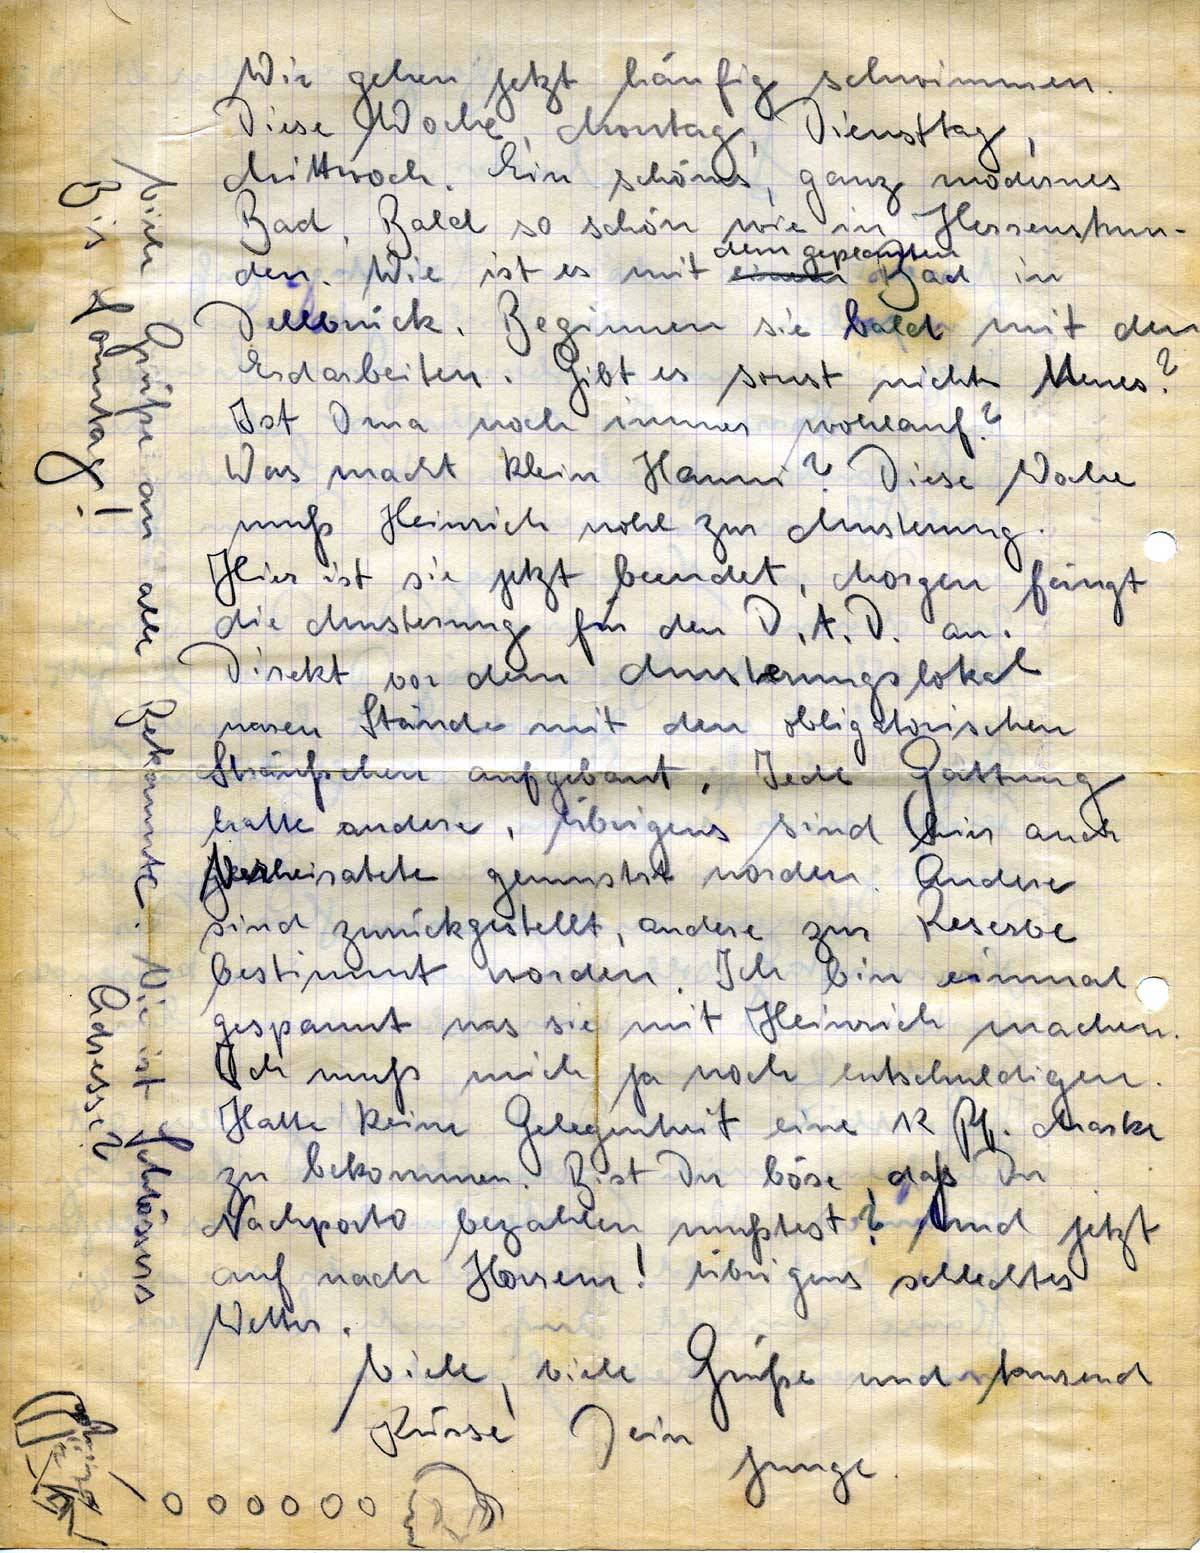 Wir gehen jetzt häufig schwimmen.
Diese Woche, Montag, Diensttag,
Mittwoch. Ein schönes, ganz modernes
Bad. Bald so schön wie in Herrenstrun-
den. Wie ist es mit dem geplanten Bad in
Dellbrück. Beginnen sie bald mit den
Erdarbeiten. Gibt es sonst nichts Neues?
Ist Oma noch immer wohlauf?
Was macht klein Hanni? Diese Woche
muß Heinrich wohl zur Musterung.
Hier ist sie jetzt beendet, Morgen fängt
die Musterung für den D.A.D. an.
Direkt vor dem Musterungslokal
waren Stände mit den obligatorischen
Sträußchen aufgebaut. Jede Gattung
hatte andere. Übrigens sind hier auch
Verheiratete gemustert worden. Andere
sind zurückgestellt, andere zur Reserve
bestimmt worden. Ich bin einmal
gespannt was sie mit Heinrich machen.
Ich muß mich ja noch entschuldigen.
Hatte keine Gelegenheit eine 12 Pf. Marke
zu bekommen. Bist Du böse, daß Du
Nachporto bezahlen mußtest? Und jetzt
auf nach Horrem! Übrigens schlechtes
Wetter.
Viele, viele Grüße und tausend
Küsse Dein
Junge.
Viele Grüße an alle Bekannte. Wie ist Schlössers
Adresse?
Bis Sonntag!